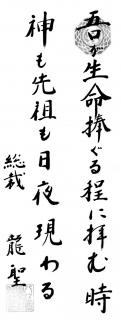 吾が生命捧ぐる程に拝む時
神も先祖も日夜現わる
総裁 龍聖